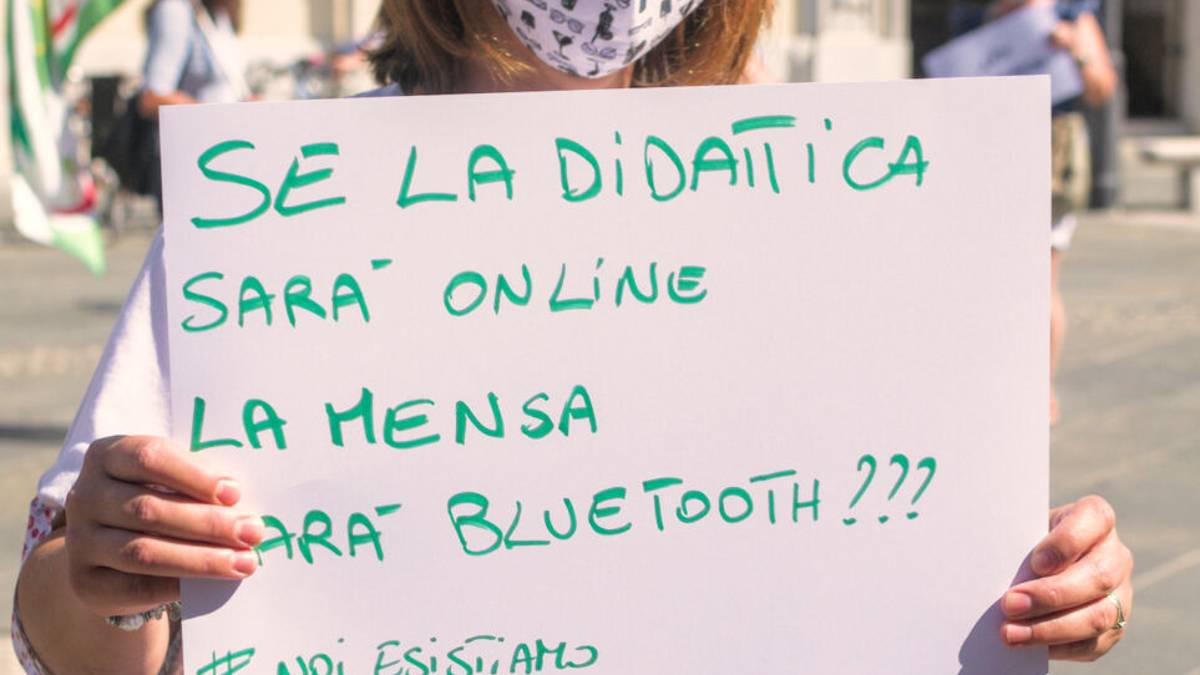 SE LA DIDATTICA
SARA' ONLINE
LA MENSA
SARA' BLUETOOTH???
# NOI ESISTIAMO